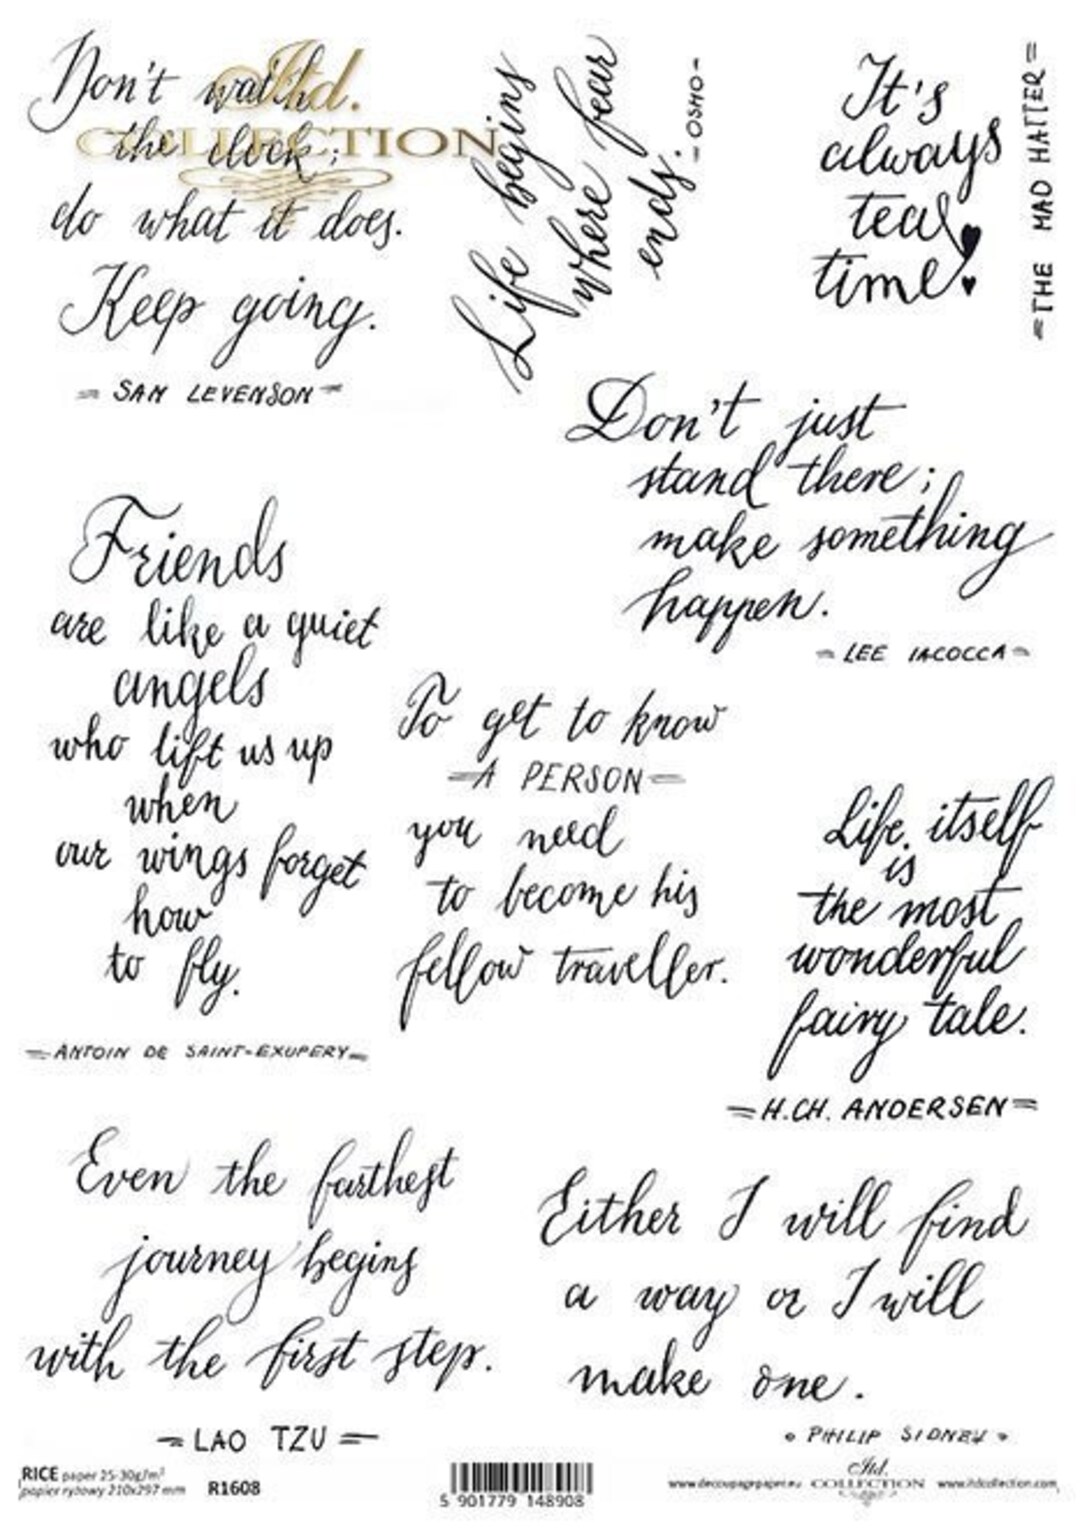 Don't watch
the clock;
do what it does.
Keep going.
= SAM LEVENSON =
Itd.
COLLECTION
Life begins
where fear
ends.
- OSHO -
It's
always
tea
time!
= THE MAD HATTER =
Don't just
stand there;
make something
happen.
= LEE IACOCCA =
Friends
are like a quiet
angels
who lift us up
when
our wings forget
how
to fly.
= ANTOIN DE SAINT-EXUPERY =
To get to know
= A PERSON =
you need
to become his
fellow traveller.
Life itself
is
the most
wonderful
fairy tale.
= H.CH. ANDERSEN =
Even the farthest
journey begins
with the first step.
= LAO TZU =
Either I will find
a way or I will
make one.
• PHILIP SIDNEY •
RICE paper 25-30g/m²
papier ryżowy 210x297 mm
R1608
5 901779 148908
www.decoupagepaper.eu
Itd.
COLLECTION
www.itdcollection.com